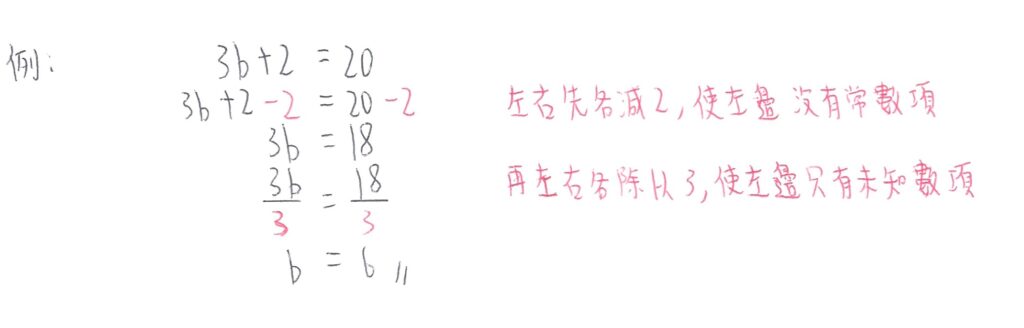 例:
3b+2 = 20
3b+2-2 = 20-2 左右先各減2,使左邊沒有常數項
3b = 18
3b/3 = 18/3 再左右各除以3,使左邊只有未知數項
b = 6 〃